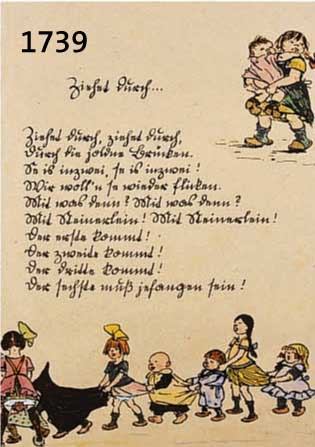 1739
Ziehet durch...
Ziehet durch, ziehet durch,
Durch die joldne Brücken.
Se is inzwei, se is inzwei!
Wir woll'n se wieder flicken.
Mit was denn? Mit was denn?
Mit Steinerlein! Mit Steinerlein!
Der erste kommt!
Der zweite kommt!
Der dritte kommt!
Der sechste muß jefangen sein!